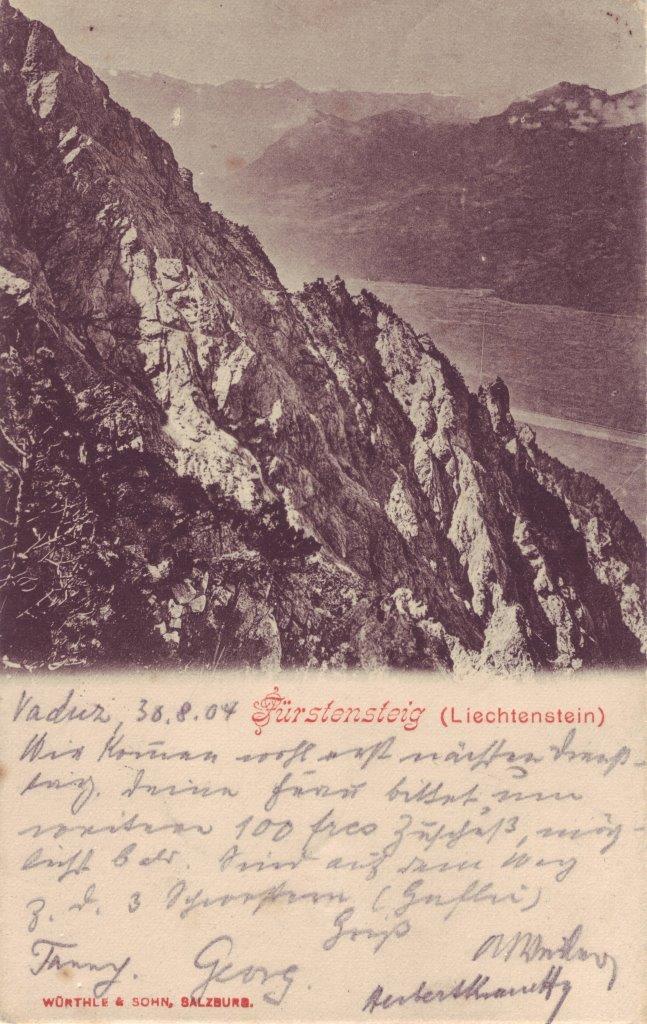 Vaduz, 30.8.04 Fürstensteig (Liechtenstein)
Wir kommen wohl erst nächsten Diens-
tag. Deine Frau bittet um
weitere 100 frcs Zuschuß, mög-
lichst bar. Sind auf dem Weg
z. d. 3 Schwestern (Gaflei)
Gruß
Fanny. Georg.
WÜRTHLE & SOHN, SALZBURG.